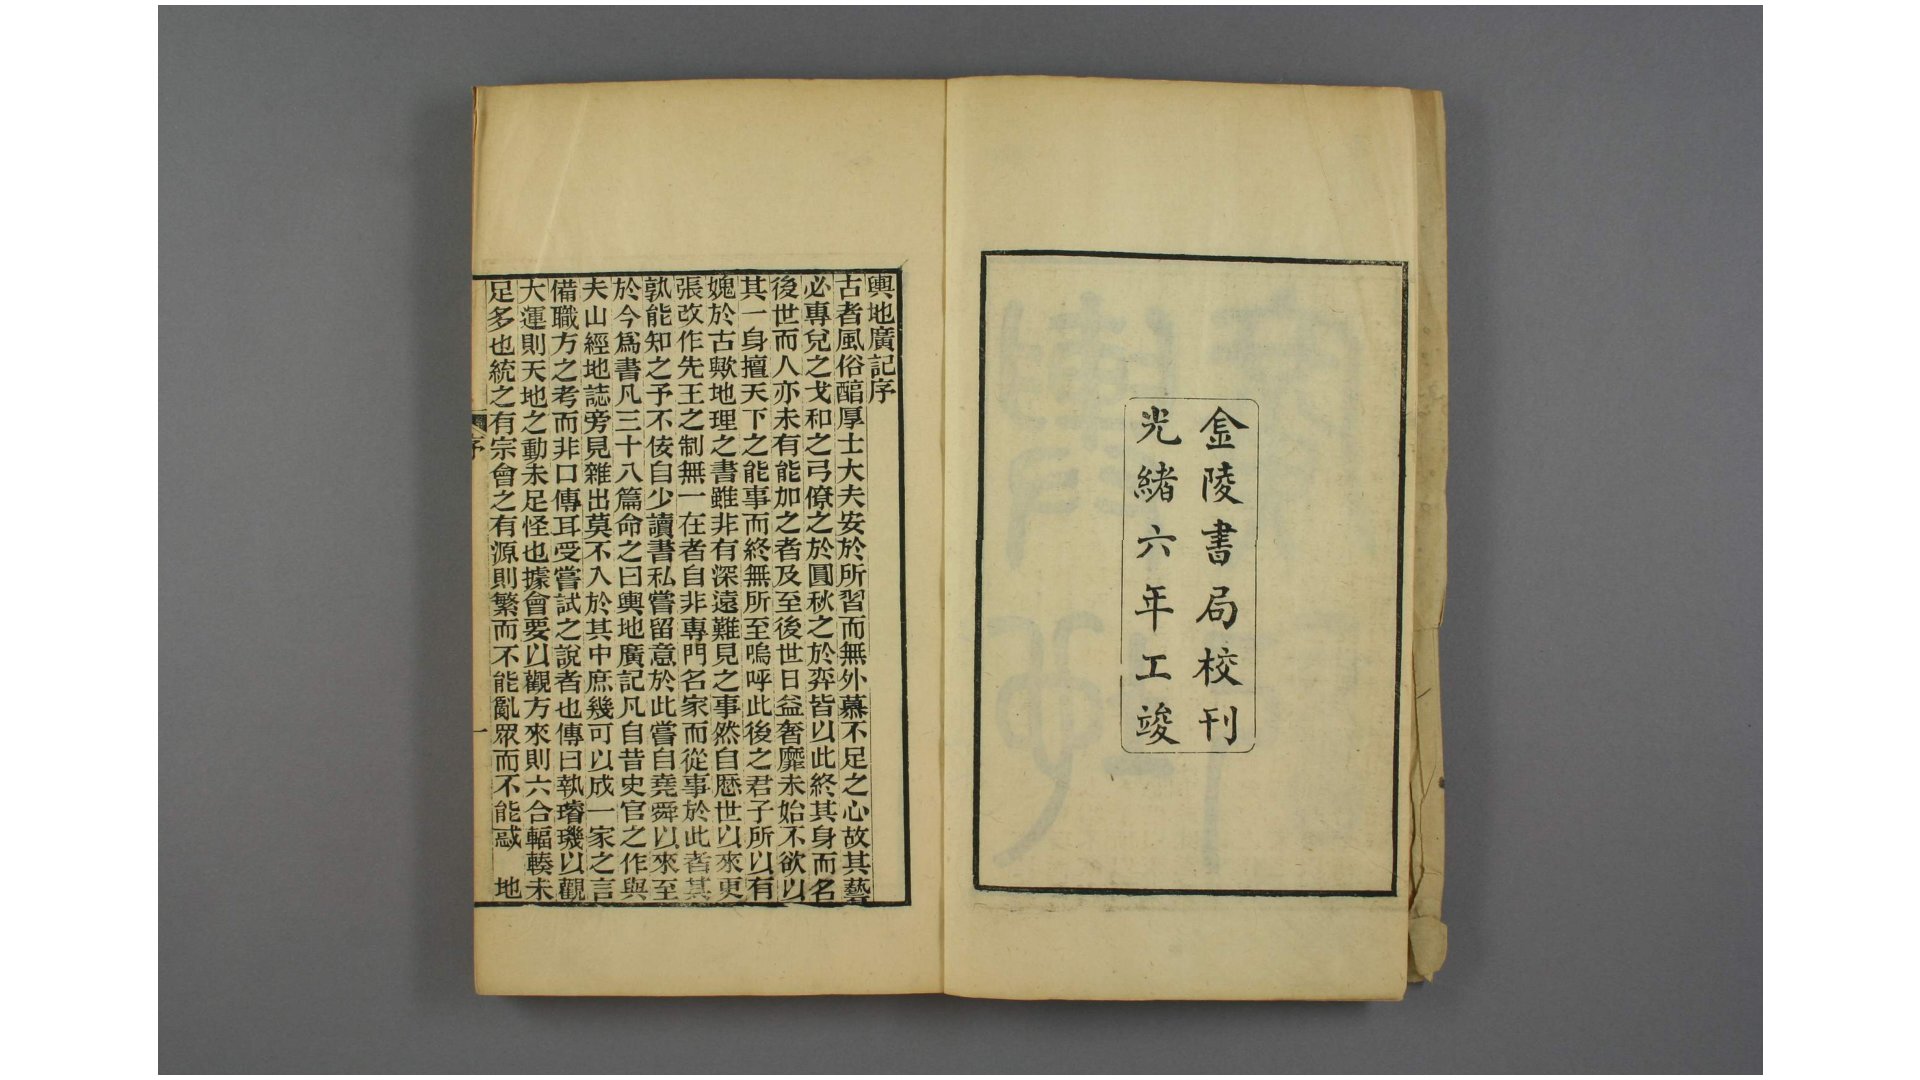 金陵書局校刊
光緒六年工竣
輿地廣記序
古者風俗醕厚士大夫安於所習而無外慕不足之心故其藝
必專兌之戈和之弓僚之於圓秋之於弈皆以此終其身而名
後世而人亦未有能加之者及至後世日益奢靡未始不欲以
其一身擅天下之能事而終無所至嗚呼此後之君子所以有
媿於古歟地理之書雖非有深遠難見之事然自歷世以來更
張改作先王之制無一在者自非專門名家而從事於此者其
孰能知之予不佞自少讀書私嘗留意於此嘗自堯舜以來至
於今爲書凡三十八篇命之曰輿地廣記凡自昔史官之作與
夫山經地誌旁見雜出莫不入於其中庶幾可以成一家之言
備職方之考而非口傳耳受嘗試之說者也傳曰執璿璣以觀
大運則天地之動未足怪也據會要以觀方來則六合輻輳未
足多也統之有宗會之有源則繁而不能亂眾而不能惑 地
序
一